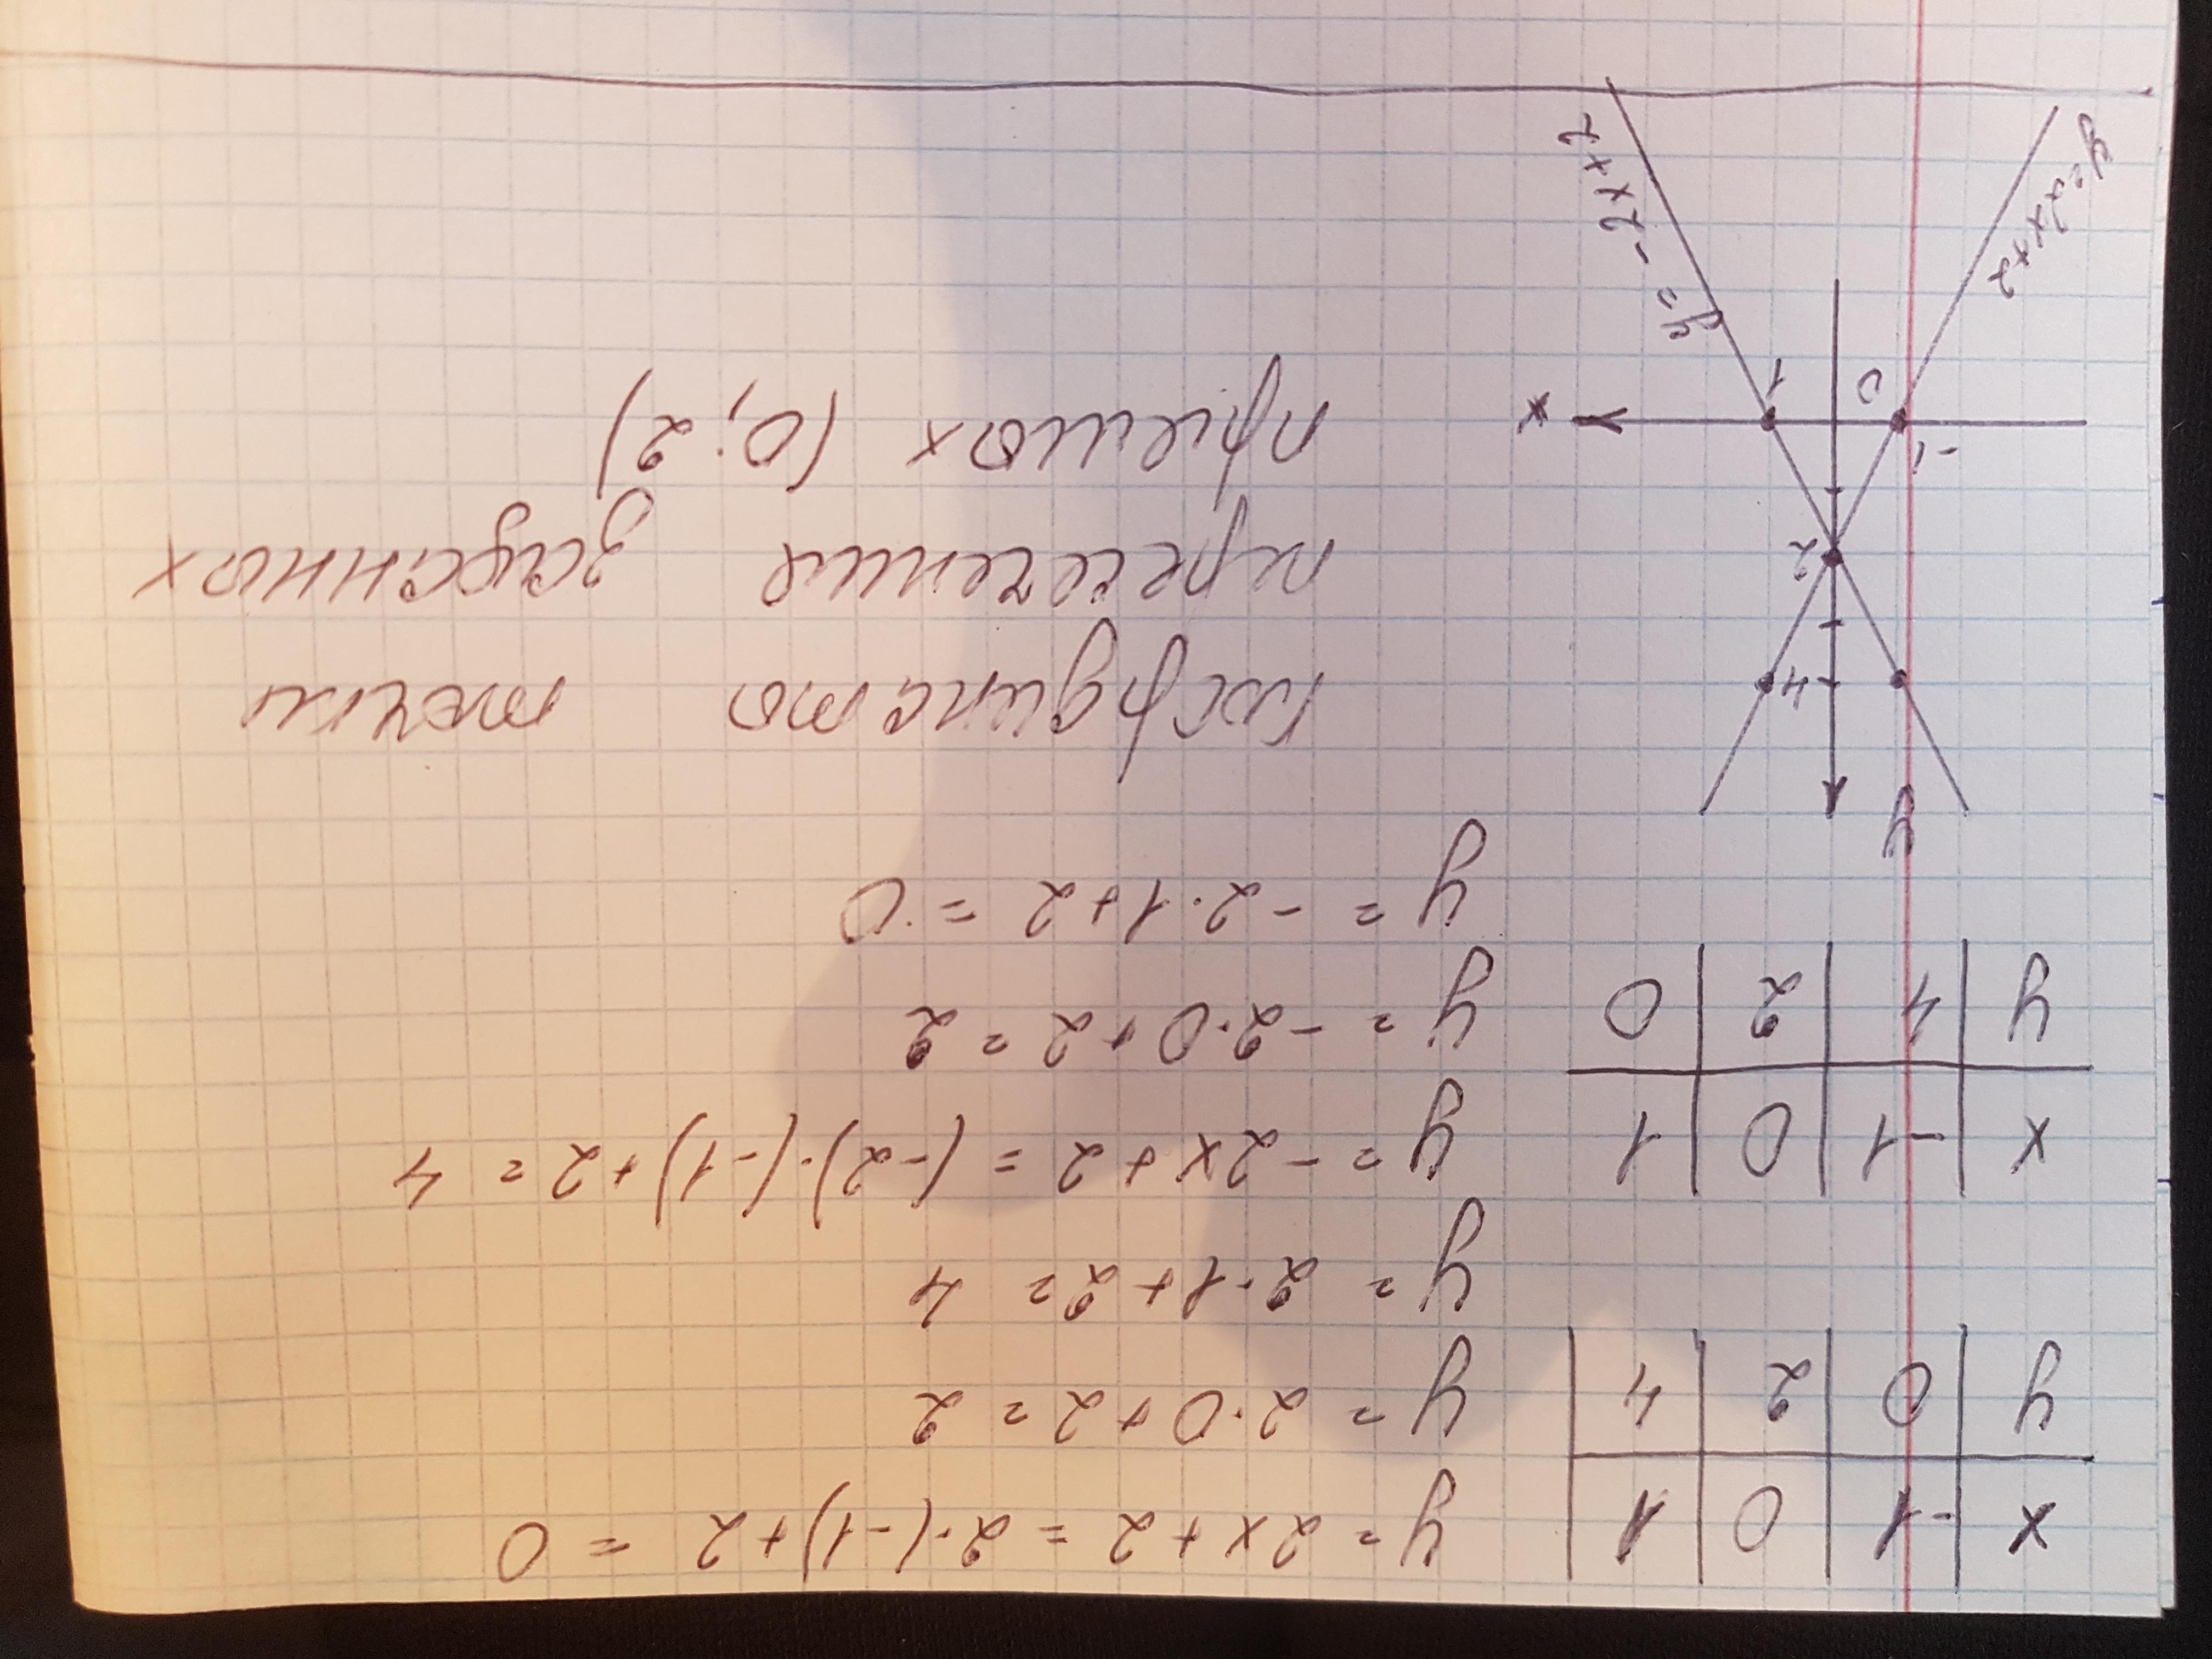 x | -1 | 0 | 1
y | 0 | 2 | 4
y = 2x + 2 = 2·(-1) + 2 = 0
y = 2·0 + 2 = 2
y = 2·1 + 2 = 4
x | -1 | 0 | 1
y | 4 | 2 | 0
y = -2x + 2 = (-2)·(-1) + 2 = 4
y = -2·0 + 2 = 2
y = -2·1 + 2 = 0
y
4
2
-1
0
1
x
y = -2x+2
y = 2x+2
координаты точки
пересечения заданных
прямых (0; 2)